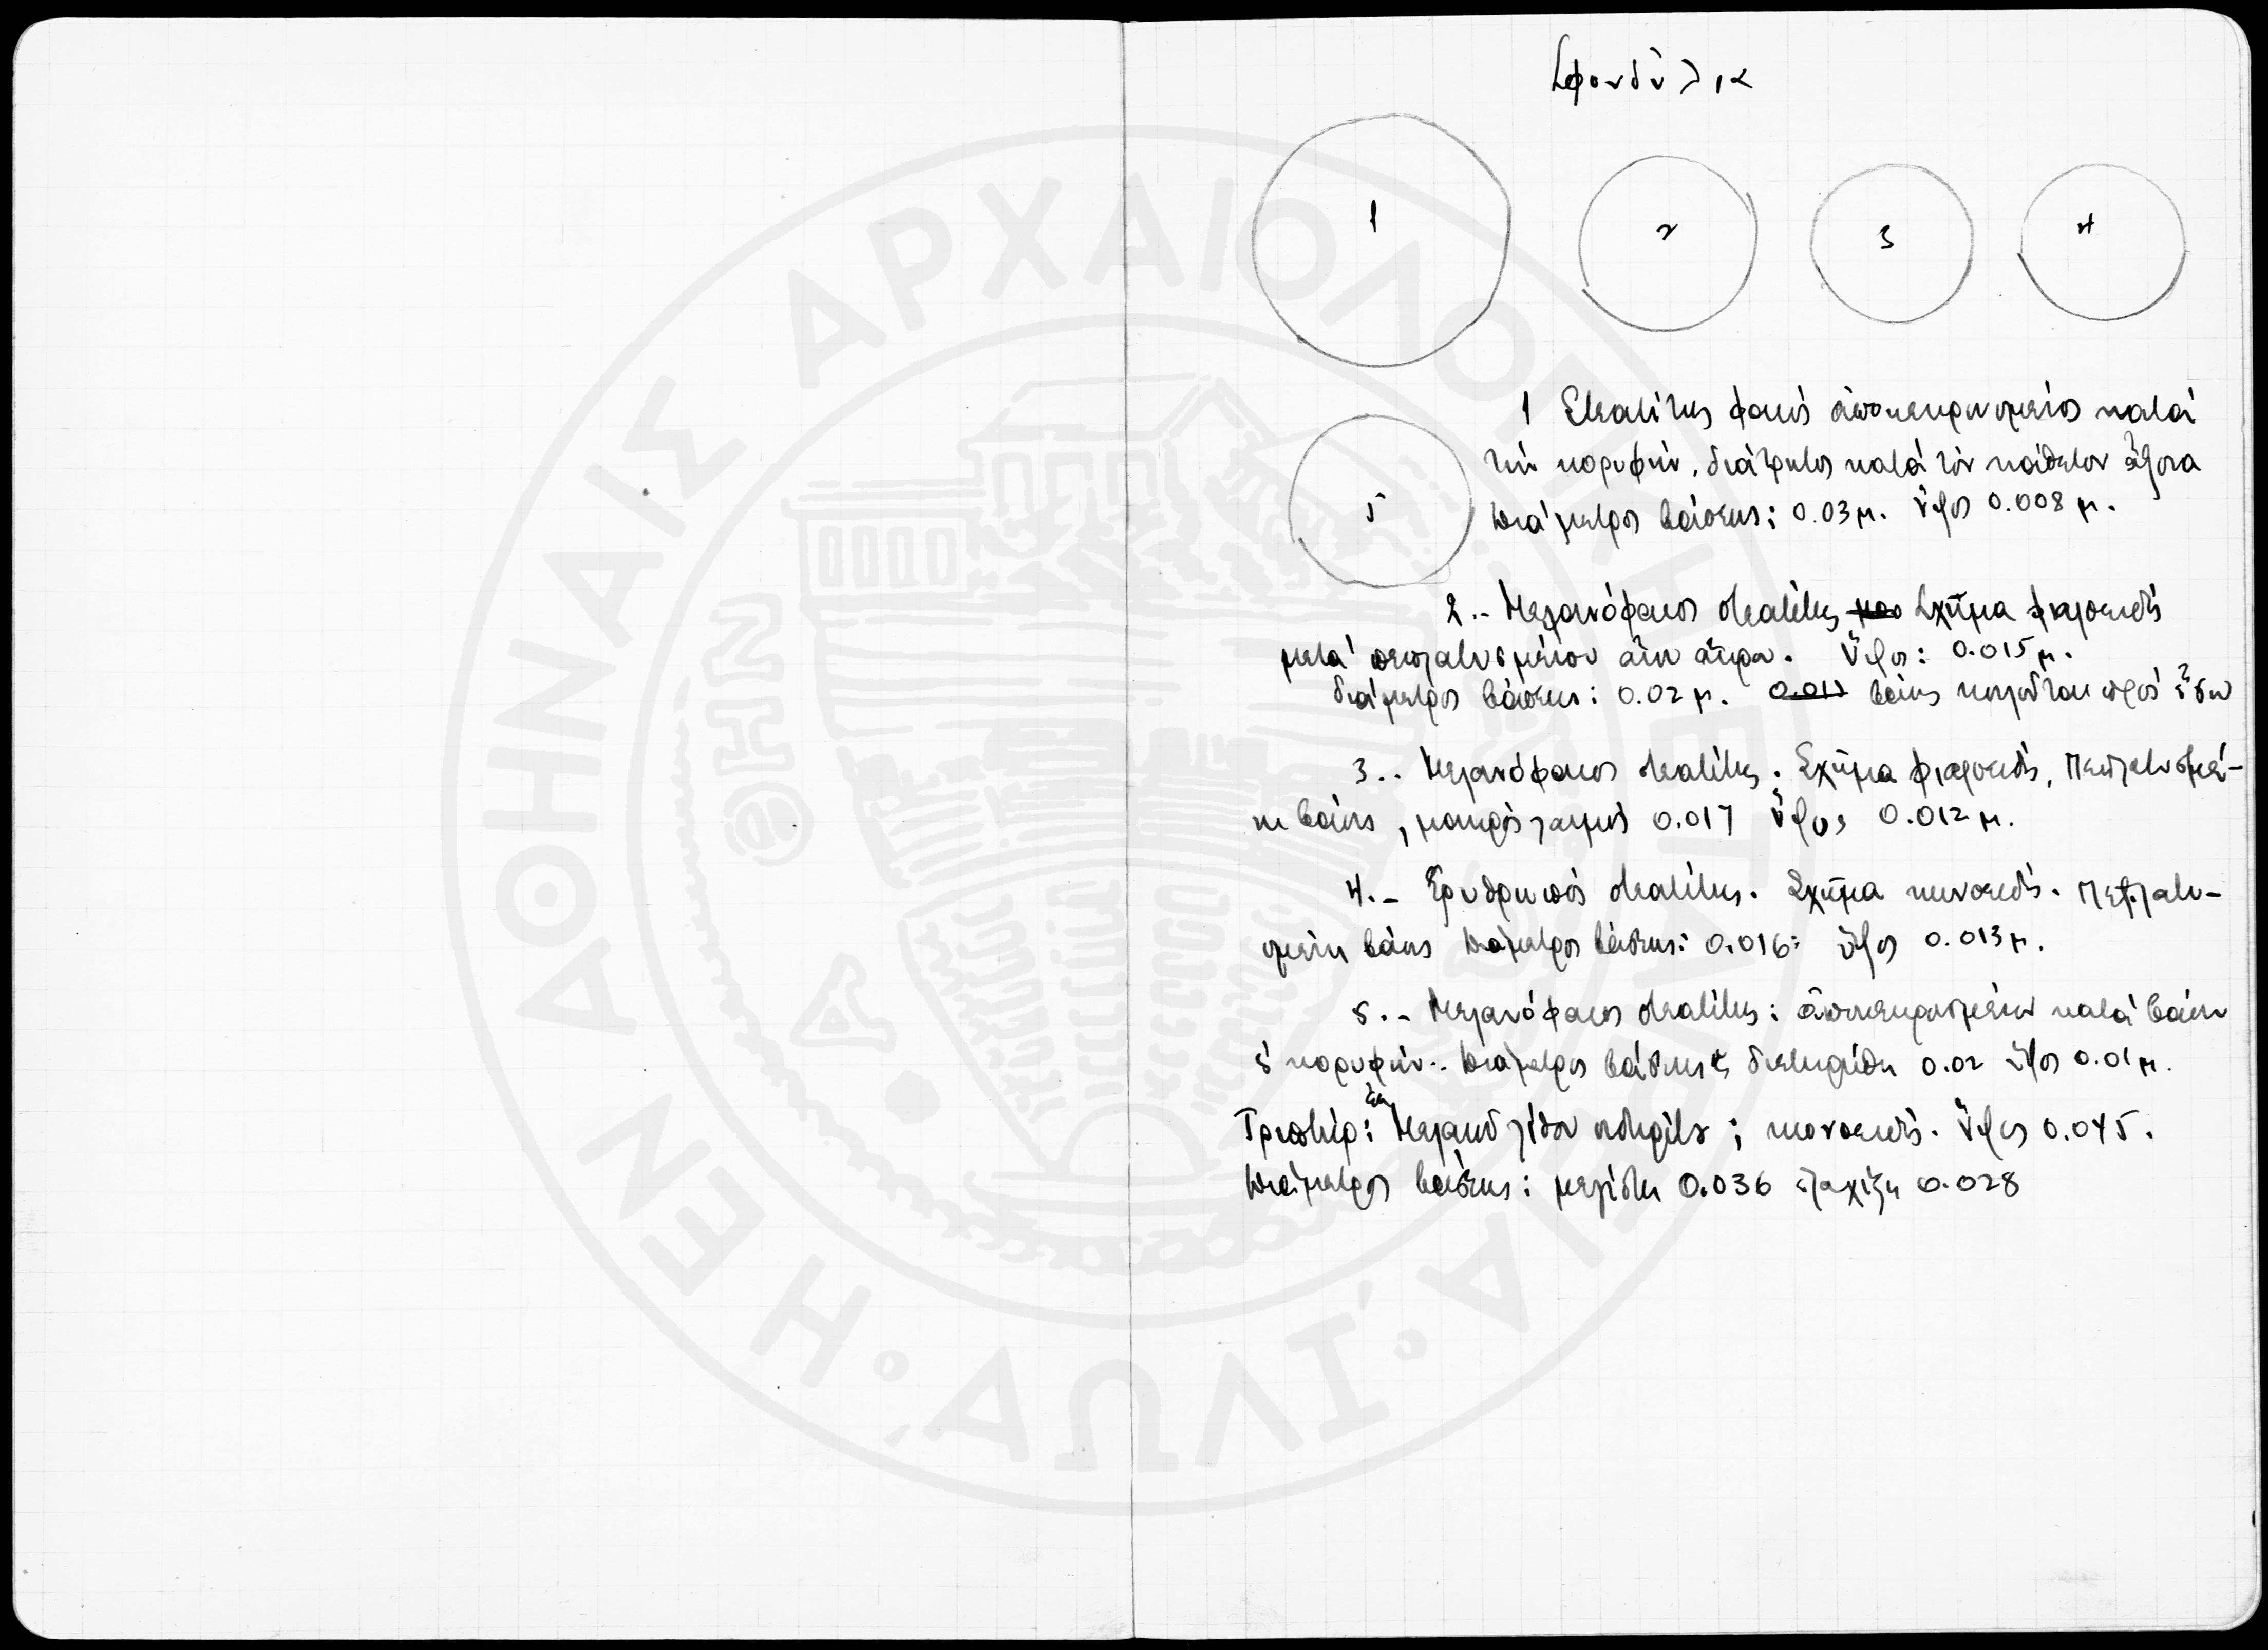 Σφονδύλια
1
2
3
4
5
1 Στεατίτης φαιός ἀποκεκρυμμένος κατά
τήν κορυφήν, διάτρητος κατά τόν κάθετον ἄξονα
Διάμετρος βάσεως: 0.03 μ. ὕψος 0.008 μ.
2.- Μελανόφαιος στεατίτης Σχῆμα φιαλοειδές
μετά πεπλατυσμένου ἄνω ἄκρου. Ὕψος: 0.015 μ.
διάμετρος βάσεως: 0.02 μ. βάσις κοιλοῦται πρός ἔσω
3.. Μελανόφαιος στεατίτης. Σχῆμα φιαλοειδές, Πεπλατυσμέ-
νη βάσις, μακρός λαιμός 0.017 ὕψος 0.012 μ.
4.- Ἐρυθρωπός στεατίτης. Σχῆμα κωνοειδές. Πεπλατυ-
σμένη βάσις Διάμετρος βάσεως: 0.016: ὕψος 0.013 μ.
5.- Μελανόφαιος στεατίτης: κατά βάσιν
κορυφήν.. Διάμετρος βάσεως 0.02 ὕψος 0.01 μ.
Τριπτήρ: ἐκ Μελανοῦ λίθου ; κωνοειδές. Ὕψος 0.045.
Διάμετρος βάσεως: μεγίστη 0.036 ἐλαχίστη 0.028
ΑΡΧΑΙΟΛΟΓΙΚΗ ΕΤΑΙΡΕΙΑ
Η ΕΝ ΑΘΗΝΑΙΣ